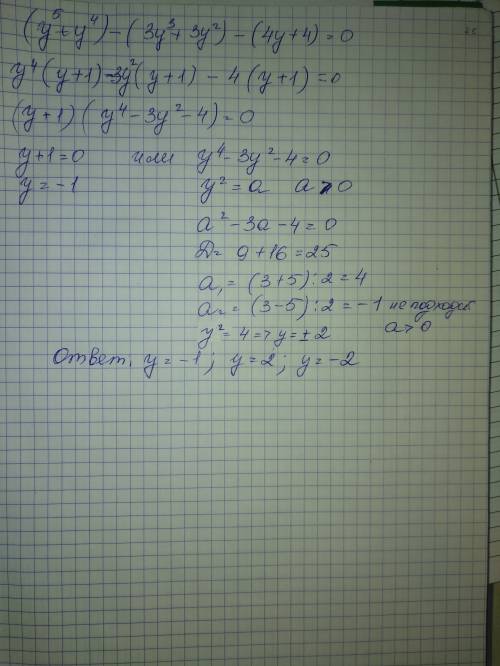 (y⁵+y⁴) - (3y³+3y²) - (4y+4)=0
y⁴(y+1)-3y²(y+1) - 4(y+1)=0
(y+1)(y⁴-3y²-4)=0
y+1=0 или y⁴-3y²-4=0
y=-1 y²=a a>0
a²-3a-4=0
D= 9+16=25
a₁=(3+5):2=4
a₂=(3-5):2=-1 не подходит
y²=4=>y=±2 a>0
Ответ. y=-1; y=2; y=-2